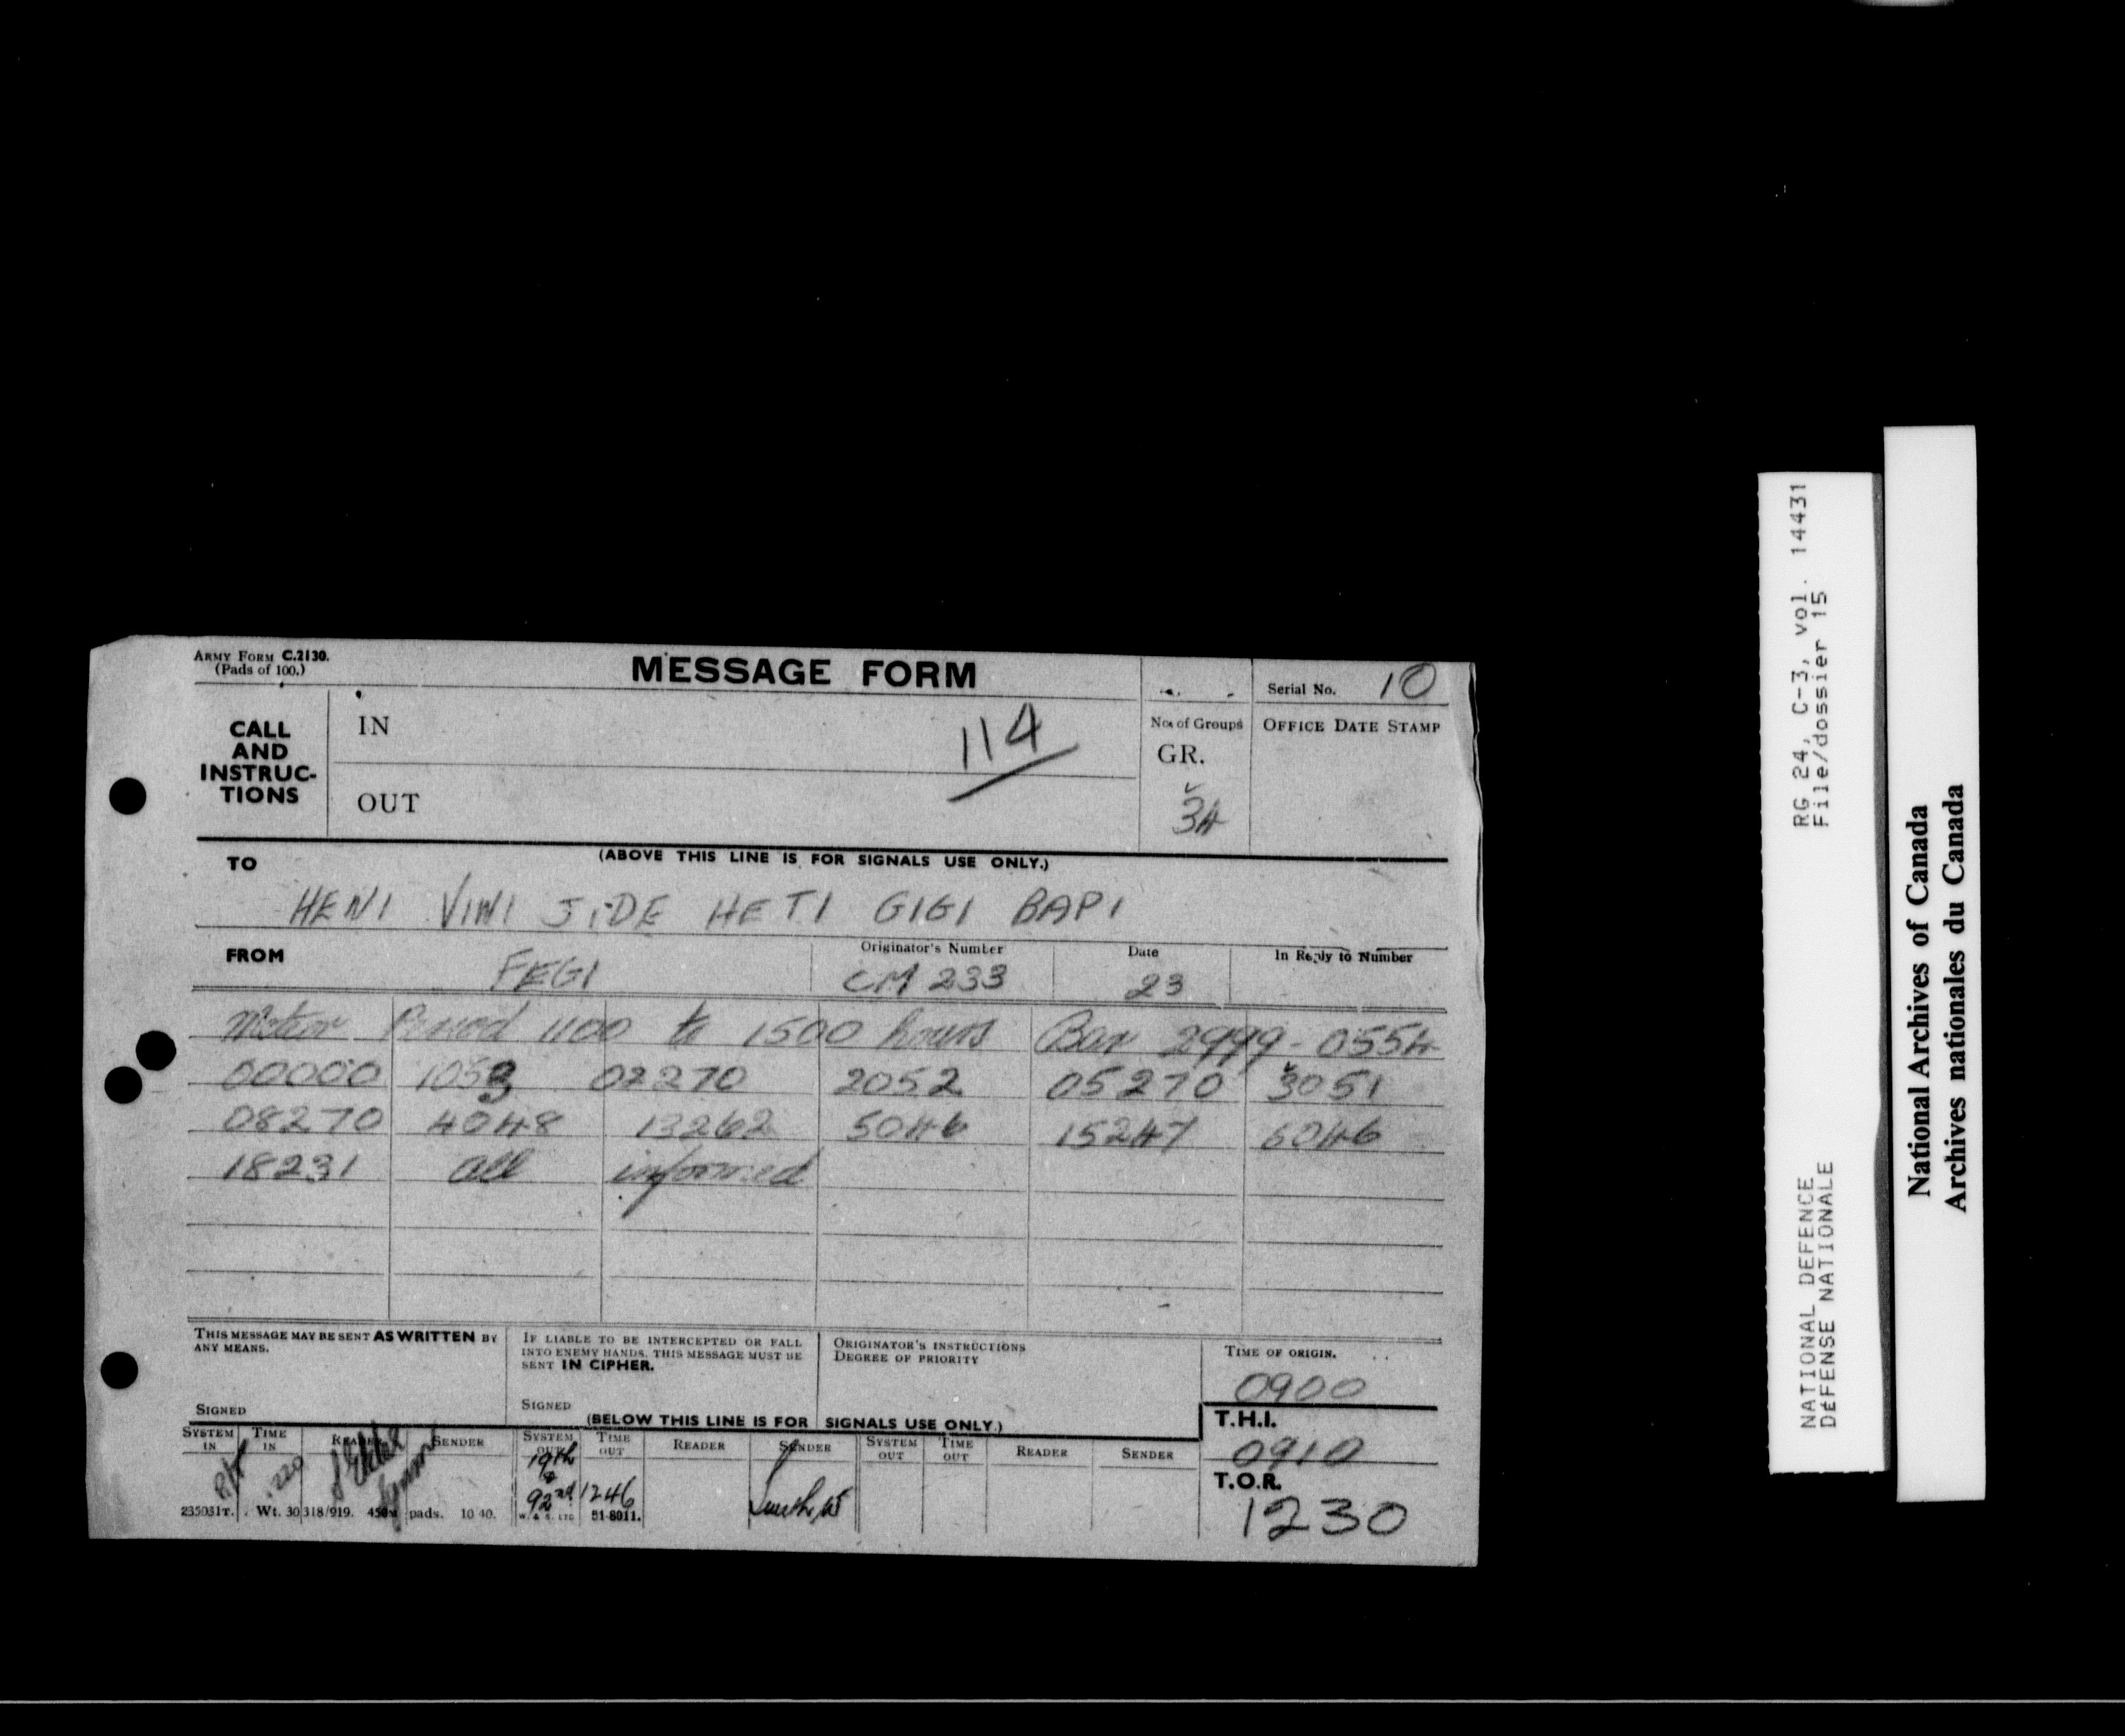 ARMY FORM C.2130.
(Pads of 100.)
MESSAGE FORM
Serial No. 10
CALL AND INSTRUC-TIONS
IN
114
OUT
No. of Groups
GR.
34
OFFICE DATE STAMP
(ABOVE THIS LINE IS FOR SIGNALS USE ONLY.)
TO
HENI VINI JIDE HETI GIGI BAPI
FROM FEGI
Originator's Number
CM 233
Date
23
In Reply to Number
Meteor Period 1100 to 1500 hours Bar 2999-0554
00000 1053 02270 2052 05270 3051
08270 4048 13262 5046 15247 6046
18231 all informed
THIS MESSAGE MAY BE SENT AS WRITTEN BY
ANY MEANS.
SIGNED
IF LIABLE TO BE INTERCEPTED OR FALL
INTO ENEMY HANDS, THIS MESSAGE MUST BE
SENT IN CIPHER.
SIGNED
ORIGINATOR'S INSTRUCTIONS
DEGREE OF PRIORITY
TIME OF ORIGIN.
0900
(BELOW THIS LINE IS FOR SIGNALS USE ONLY.)
T.H.I.
0910
T.O.R.
1230
SYSTEM IN TIME IN READER SENDER SYSTEM OUT TIME OUT READER SENDER SYSTEM OUT TIME OUT READER SENDER
R/T
19th
&
92nd 1246
235031T. Wt. 30318/919. 450M pads. 10 40. W. & S. LTD 51-8011.
RG 24, C-3, vol. 14431
File/dossier 15
NATIONAL DEFENCE
DÉFENSE NATIONALE
National Archives of Canada
Archives nationales du Canada